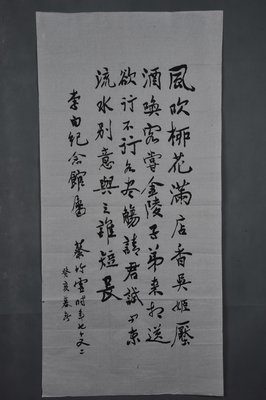 風吹柳花滿店香吳姬壓
酒喚客嘗金陵子弟來相送
欲行不行各盡觴請君試問東
流水別意與之誰短長
李白紀念館屬
蔡竹雲時年七十又二
癸亥暮冬